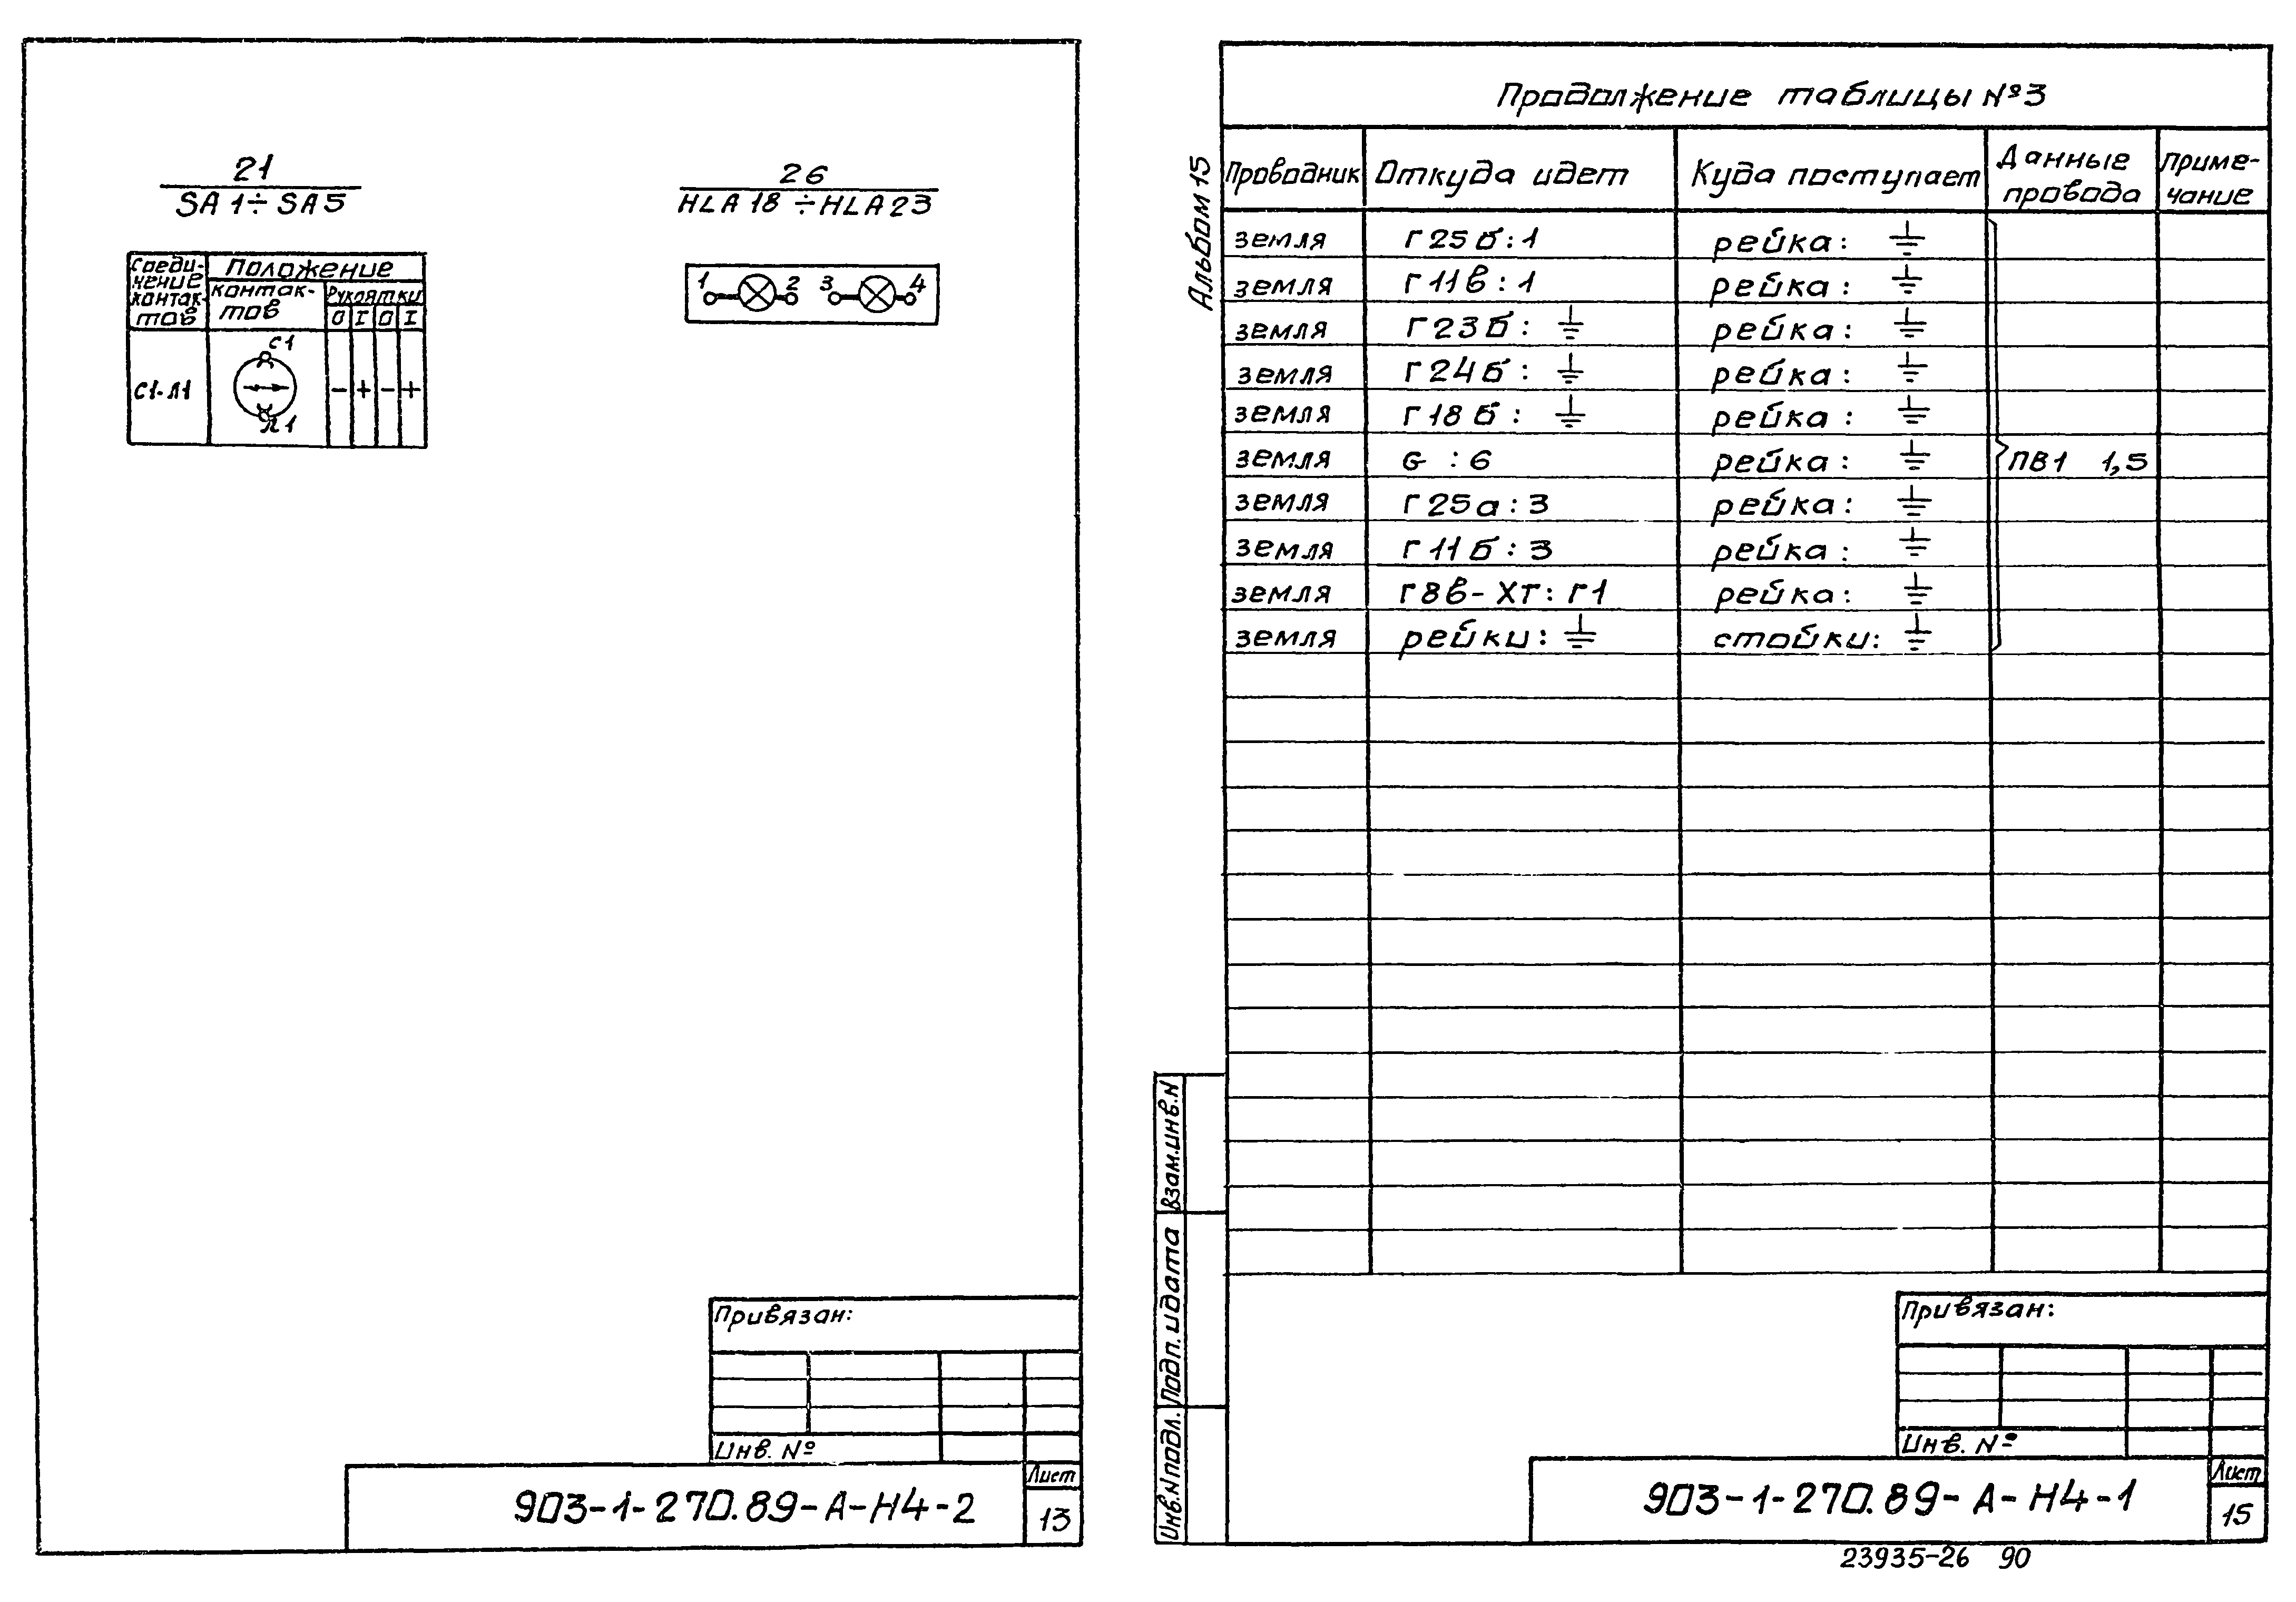 21
SA1÷SA5
26
HLA18÷HLA23
Соеди-
нение
контак-
тов
Положение
контак-
тов
Рукоятки
0 I 0 I
С1
С1-Л1
Л1
- + - +
1 2 3 4
Привязан:
Инв. №
903-1-270.89-А-Н4-2
Лист
13
Альбом 15
Продолжение таблицы №3
Проводник Откуда идет Куда поступает Данные провода Приме-чание
земля Г25б:1 рейка: ⏚
земля Г11в:1 рейка: ⏚
земля Г23б: ⏚ рейка: ⏚
земля Г24б: ⏚ рейка: ⏚
земля Г18б: ⏚ рейка: ⏚
земля G :6 рейка: ⏚ ПВ1 1,5
земля Г25а:3 рейка: ⏚
земля Г11б:3 рейка: ⏚
земля Г8в-ХТ:Г1 рейка: ⏚
земля рейки: ⏚ стойки: ⏚
Взам.инв.N
Подп. и дата
Инв.N подл.
Привязан:
Инв. №
903-1-270.89-А-Н4-1
Лист
15
23935-26 90